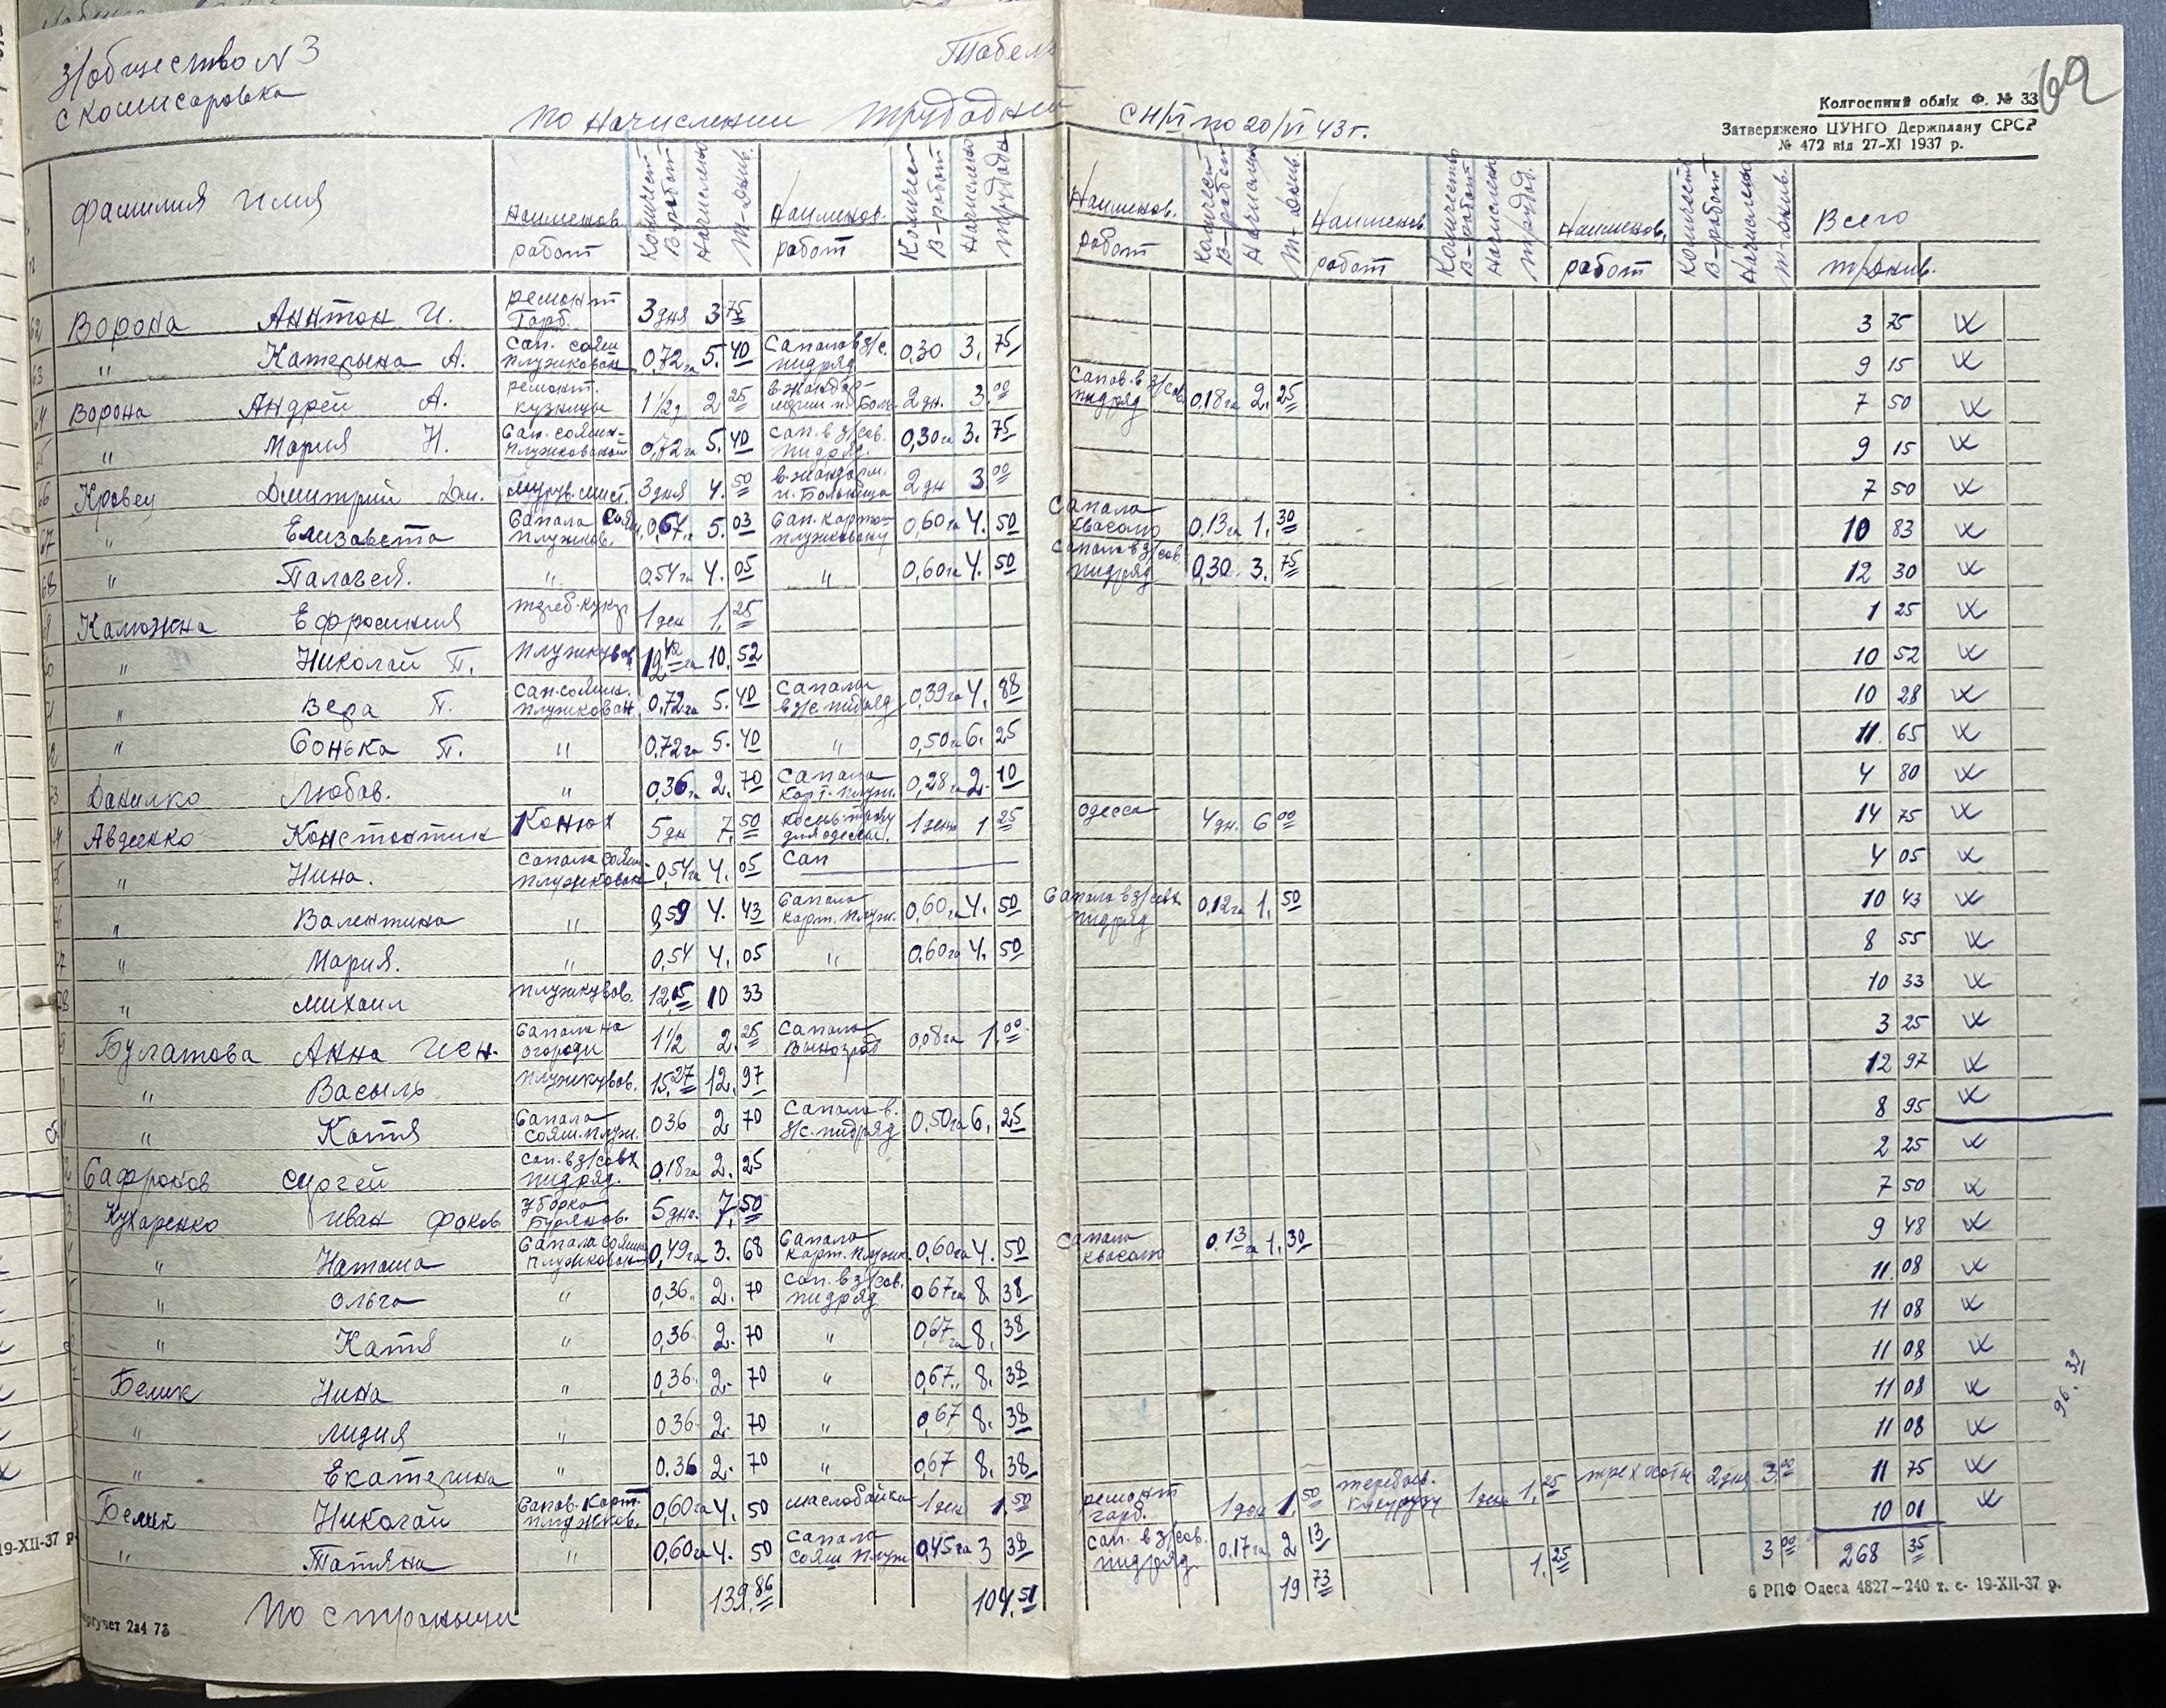 З/общество N 3
с Комисаровка
Табель
по начислении трудодней с 11/VI по 20/VI 43 г.
69
Колгоспний облік Ф. № 33
Затверджено ЦУНГО Держплану СРСР
№ 472 від 27-XI 1937 р.
Фамилия Имя | Наименов. работ | Количест. В-работ | Начислено т-днив. | Наименов. работ | Количест В-работ | Начислено трудодн | Наименов. работ | Количест В-работ | Начислено т-днив. | Наименов работ | Количеств В-работ | Начислено трудод. | Наименов. работ | Количеств В-работ | Начислено т-днив. | Всего тр/днив.
62 Ворона Анитон И. ремонт Гарб. 3 дня 3 75 | 3 75
63 " Катерына А. Сап. сояш плужкован 0,72 га 5. 40 Сапалов з/с. пидряд 0,30 3. 75 | 9 15
Ворона Андрей А. ремонт. кузницы 1 1/2 д 2 25 в жандармерии и Бол. 2 дн. 3. 00 Сапов. в з/сов. пидряд 0,18 га 2. 25 | 7 50
" Мария Н. Сап. сояш- плужкований 0,72 га 5. 40 сап. в з/сов. пидряд. 0,30 га 3. 75 | 9 15
66 Кравец Дмитрий Дм. 3 дня 4. 50 в жандарм. и. Больница 2 дн 3 00 | 7 50
67 " Елизавета Сапала сояш. плужков. 0,67 5. 03 Сап. карто- плужковану 0,60 га 4. 50 Сапала квасолю 0,13 га 1. 30 | 10 83
68 " Палагея. " 0,54 га 4. 05 " 0,60 га 4. 50 сапала в з/сов. пидряд 0,30 3. 75 | 12 30
Калюжна Ефросиния тереб. кукр 1 ден 1, 25 | 1 25
" Николай П. плужкував 10. 52 | 10 52
" Вера П. Сап. сояшн. плужкован 0,72 га 5. 40 Сапала в з/с пидряд 0,39 га 4. 88 | 10 28
" Сонька П. " 0,72 га 5. 40 " 0,50 га 6. 25 | 11. 65
Данилко Любов. " 0,36 га 2. 70 Сапала карт. плуж. 0,28 га 2. 10 | 4 80
Авдеенко Константин Конюх 5 дн 7, 50 косыв траву для одессы. 1 день 1 25 одесса 4 дн. 6 00 | 14 75
" Нина. Сапала сояш- плужкован 0,54 га 4. 05 Сап | 4 05
" Валентина " 0,59 4. 43 Сапала карт. плуж. 0,60 га 4. 50 Сапала в з/сов. пидряд 0,12 га 1. 50 | 10 43
" Мария. " 0,54 4. 05 " 0,60 га 4. 50 | 8 55
78 " Михаил плужкував. 12,15 10 33 | 10 33
Булатова Анна Исн. Сапала на огороди 1 1/2 2. 25 Сапала выноград 0,08 га 1. 00 | 3 25
" Васыль плужкував. 15,27 12. 97 | 12 97
" Катя Сапала сояш. плуж. 036 2 70 Сапала в. з/с. пидряд 0,50 га 6. 25 | 8 95
Сафронов Сергей сап. в з/совх пидряд. 0,18 га 2. 25 | 2 25
Кухаренко Иван Факов уборка Бурянов. 5 дне. 7, 50 | 7 50
" Наташа Сапала сояшн плужкован 0,49 га 3. 68 Сапала карт. плужк. 0,60 га 4. 50 Сапала квасолю 0,13 га 1. 30 | 9 48
" Ольга " 0,36. 2. 70 Сап. в з/сов. пидряд 0 67 га 8. 38 | 11. 08
" Катя " 0,36 2. 70 " 0,67 га 8. 38 | 11 08
Белик Нина " 0,36. 2. 70 " 0,67. 8. 38 | 11 08
" Лидия " 0 36 2. 70 " 0,67 8. 38 | 11 08
" Екатерина " 0.36 2. 70 " 0,67 8. 38 | 11 08
Белик Николай Сапов. Карт. плужков. 0,60 га 4. 50 маслобойка 1 ден 1. 50 ремонт гарб. 1 ден 1. 50 теребыв. кукурузу 1 ден 1. 25 2 дня 3. 00 | 11 75
" Татяна " 0,60 га 4. 50 Сапала сояш плуж 0,45 га 3 38 Сап. в з/сов. пидряд 0.17 га 2 13 | 10 01
По страныци 139. 86 104. 51 19 73 1. 25 3 00 268 35
96. 39
19-XII-37 р.
2а4 73
6 РПФ Одеса 4827—240 т. с- 19-XII-37 р.